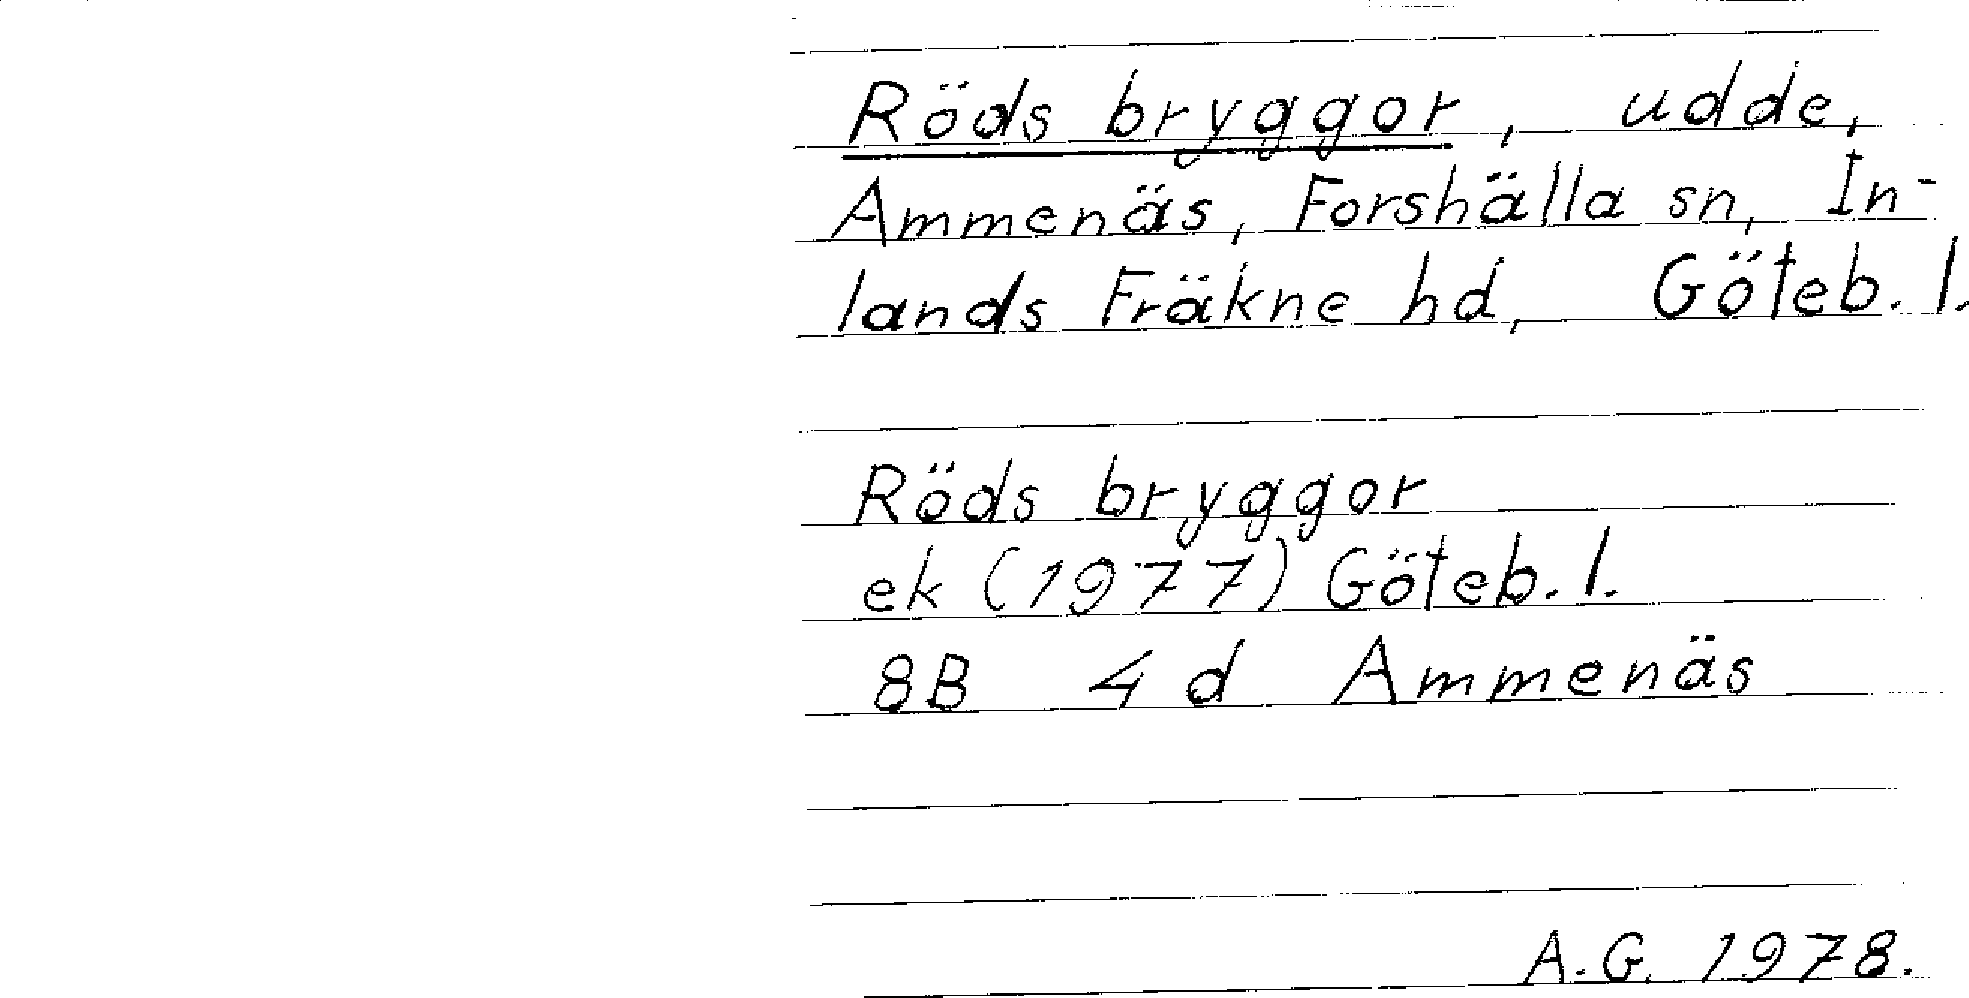 Röds bryggor, udde,
Ammenäs, Forshälla sn, In-
lands Fräkne hd, Göteb. l.
Röds bryggor
ek (1977) Göteb. l.
8B 4d Ammenäs
A.G. 1978.